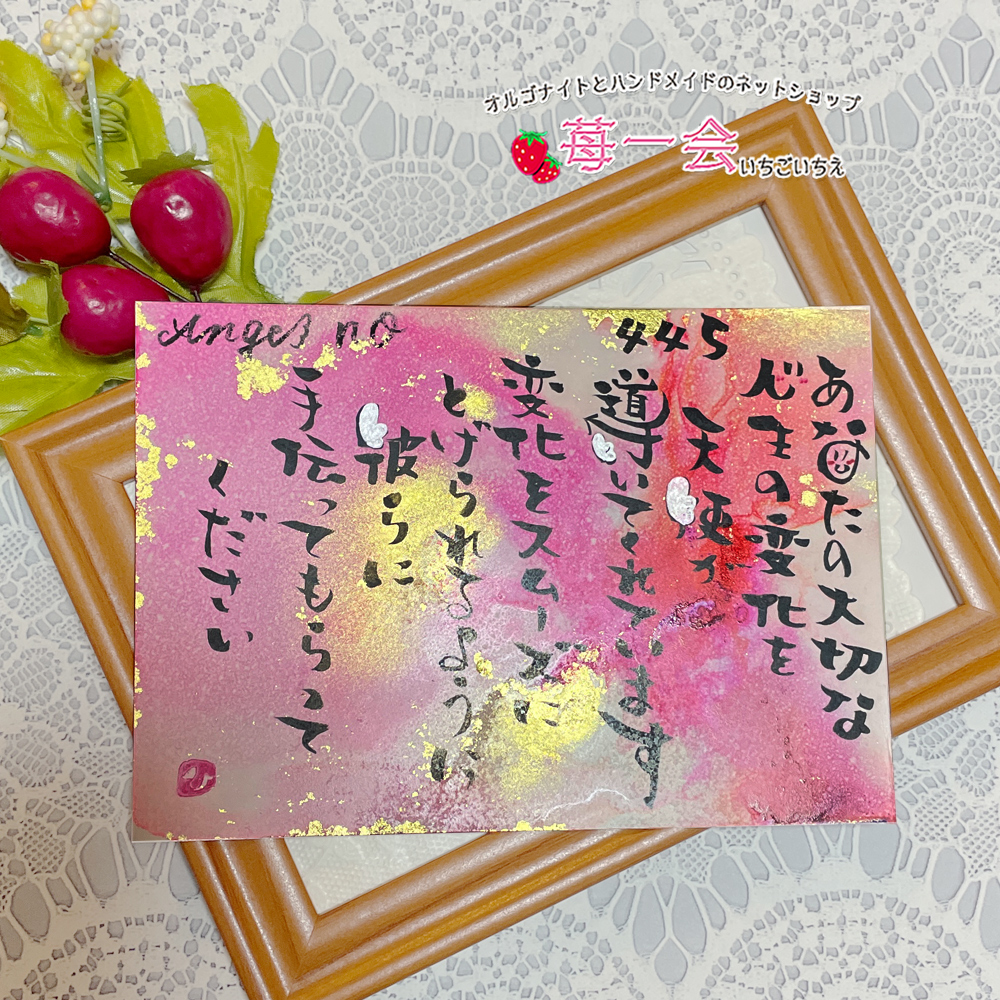 オルゴナイトとハンドメイドのネットショップ
苺一会
いちごいちえ
Angel no 445
あなたの大切な
人生の変化を
天使が
導いてくれています
変化をスムーズに
とげられるように
彼らに
手伝ってもらって
ください